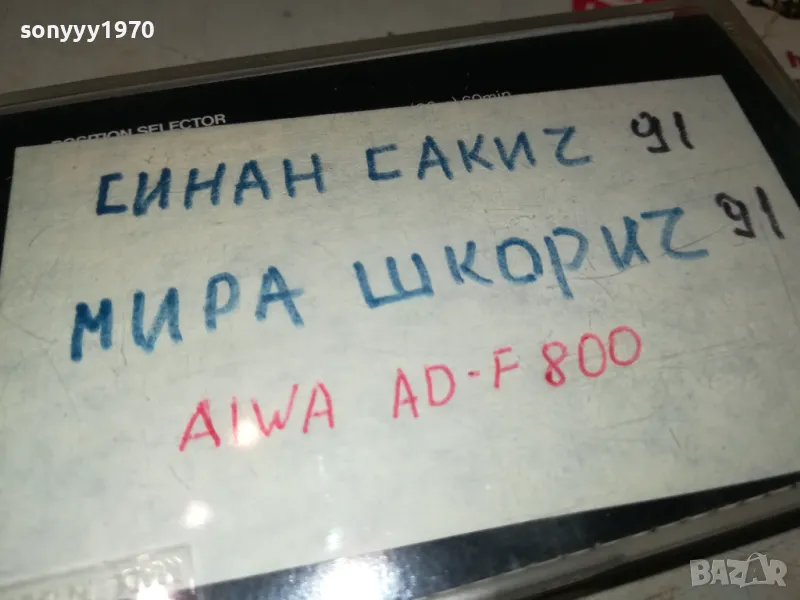 sonyyy1970
POSITION SELECTOR
60min
СИНАН САКИЧ 91
МИРА ШКОРИЧ 91
AIWA AD-F 800
BAZAR